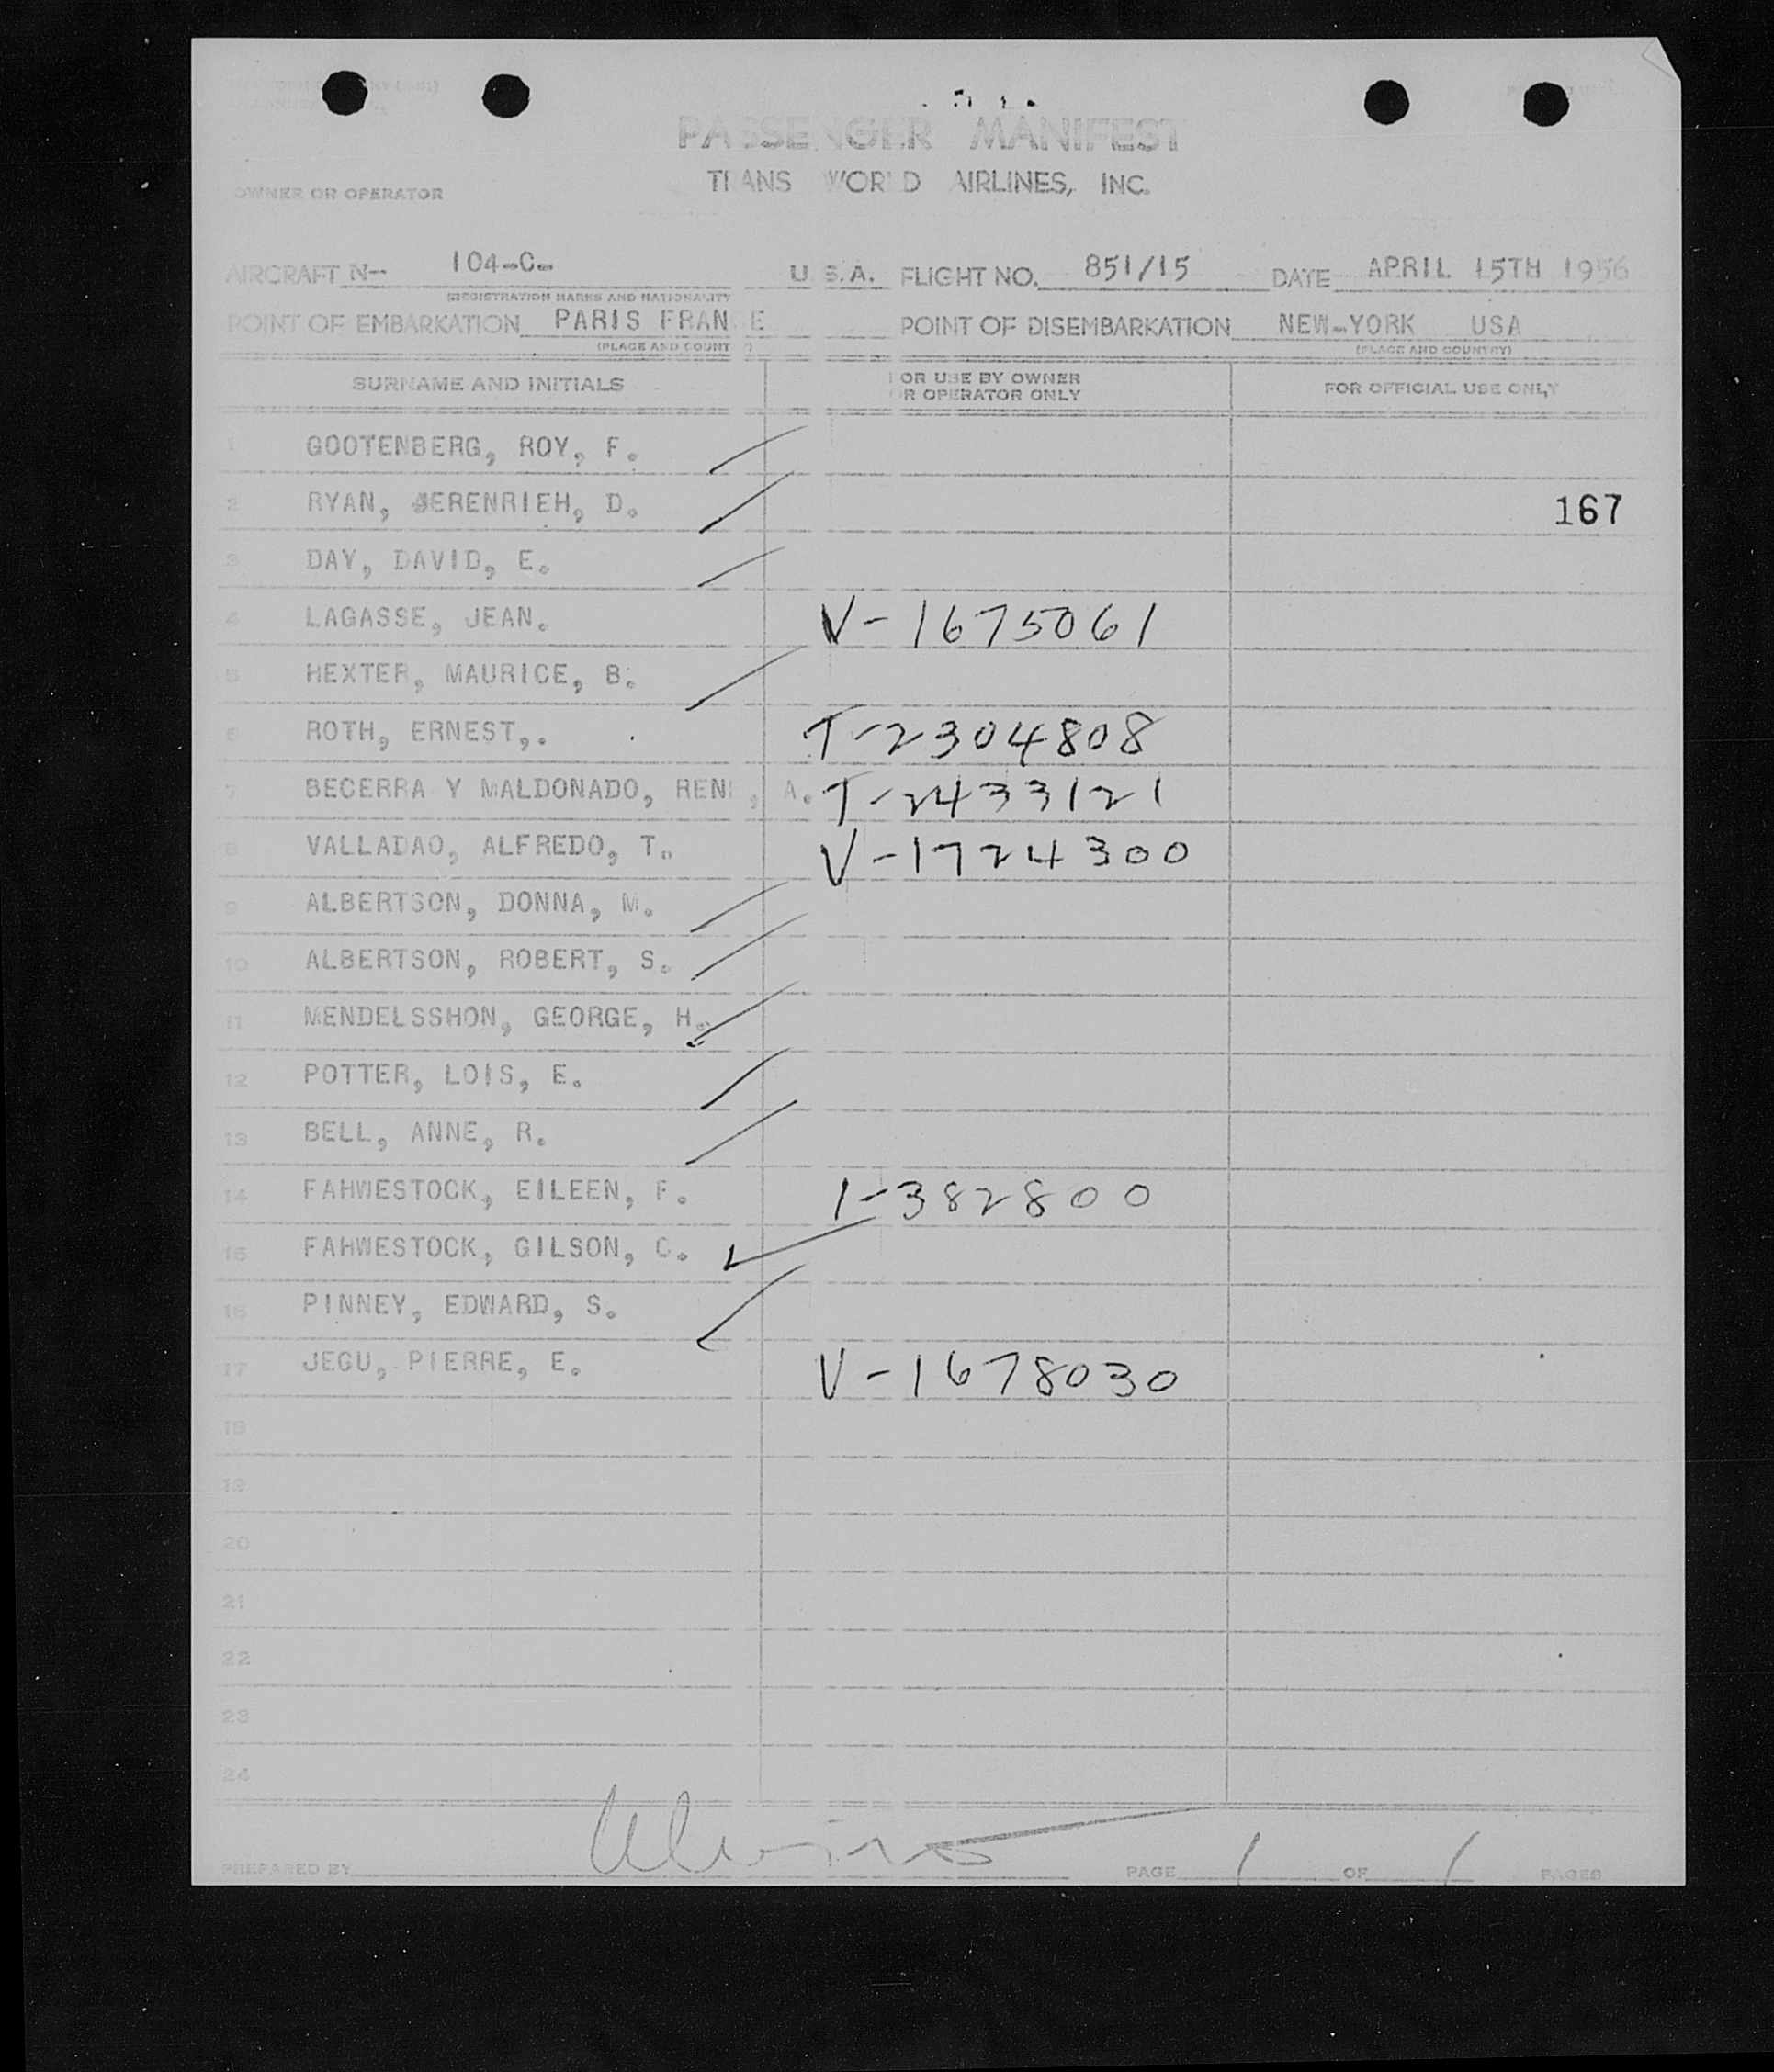 PASSENGER MANIFEST
TRANS WORLD AIRLINES, INC.
OWNER OR OPERATOR
AIRCRAFT N-- 104-C- U.S.A. FLIGHT NO. 851/15 DATE APRIL 15TH 1956
(REGISTRATION MARKS AND NATIONALITY
POINT OF EMBARKATION PARIS FRANCE POINT OF DISEMBARKATION NEW-YORK USA
(PLACE AND COUNTRY) (PLACE AND COUNTRY)
SURNAME AND INITIALS FOR USE BY OWNER OR OPERATOR ONLY FOR OFFICIAL USE ONLY
1 GOOTENBERG, ROY, F.
2 RYAN, JERENRIEH, D. 167
3 DAY, DAVID, E.
4 LAGASSE, JEAN. V-1675061
5 HEXTER, MAURICE, B.
6 ROTH, ERNEST,. T-2304808
7 BECERRA Y MALDONADO, RENE, A. T-2433121
8 VALLADAO, ALFREDO, T. V-1724300
9 ALBERTSON, DONNA, M.
10 ALBERTSON, ROBERT, S.
11 MENDELSSHON, GEORGE, H.
12 POTTER, LOIS, E.
13 BELL, ANNE, R.
14 FAHWESTOCK, EILEEN, F. 1-382800
15 FAHWESTOCK, GILSON, C.
16 PINNEY, EDWARD, S.
17 JEGU, PIERRE, E. V-1678030
18
19
20
21
22
23
24
PREPARED BY PAGE 1 OF 1 PAGES